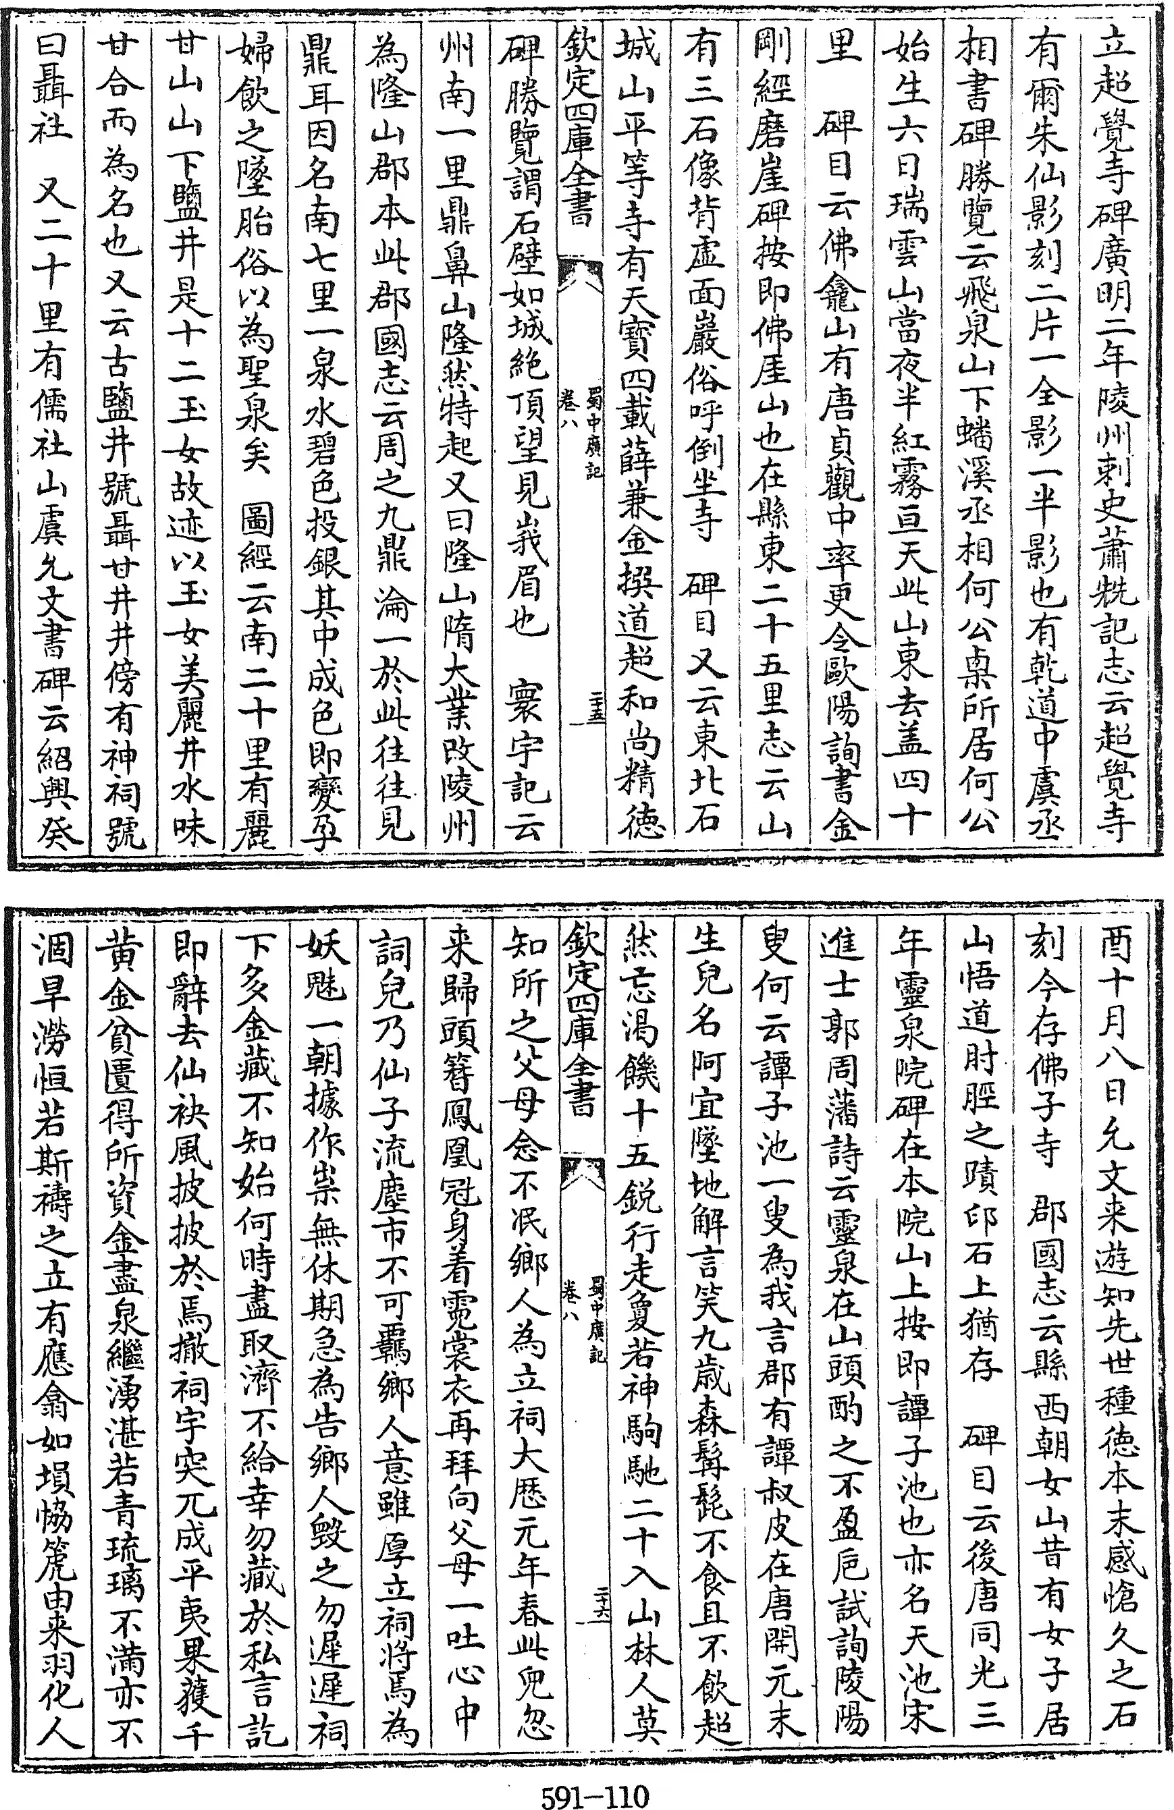 立超覺寺碑廣明二年陵州刺史蕭㲳記志云超覺寺
有爾朱仙影刻二片一全影一半影也有乾道中虞丞
相書碑勝覽云飛泉山下蟠溪丞相何公㮚所居何公
始生六日瑞雲山當夜半紅霧亘天此山東去盖四十
里　碑目云佛龕山有唐貞觀中率更令歐陽詢書金
剛經磨崖碑按即佛厓山也在縣東二十五里志云山
有三石像背虛面巖俗呼倒坐寺　碑目又云東北石
城山平等寺有天寶四載薛兼金撰道超和尚精德
欽定四庫全書　蜀中廣記　卷八　二十五
碑勝覽謂石壁如城絶頂望見峩眉也　寰宇記云
州南一里鼎鼻山隆然特起又曰隆山隋大業改陵州
為隆山郡本此郡國志云周之九鼎淪一於此往往見
鼎耳因名南七里一泉水碧色投銀其中成色即變孕
婦飲之墜胎俗以為聖泉矣　圖經云南二十里有麗
甘山山下鹽井是十二玉女故迹以玉女美麗井水味
甘合而為名也又云古鹽井號聶甘井井傍有神祠號
曰聶社　又二十里有儒社山虞允文書碑云紹興癸
酉十月八日允文来遊知先世種徳本末感愴久之石
刻今存佛子寺　郡國志云縣西朝女山昔有女子居
山悟道肘脛之蹟印石上猶存　碑目云後唐同光三
年靈泉院碑在本院山上按即譚子池也亦名天池宋
進士郭周藩詩云靈泉在山頭酌之不盈巵試詢陵陽
叟何云譚子池一叟為我言郡有譚叔皮在唐開元末
生兒名阿宜墜地解言笑九歳森髯髭不食且不飲超
然忘渴饑十五鋭行走敻若神駒馳二十入山林人莫
欽定四庫全書　蜀中廣記　卷八　二十六
知所之父母念不泯鄉人為立祠大厯元年春此兒忽
来歸頭簪鳳凰冠身着霓裳衣再拜向父母一吐心中
詞兒乃仙子流塵市不可羈鄉人意雖厚立祠將焉為
妖魅一朝據作祟無休期急為告鄉人毁之勿遲遲祠
下多金藏不知始何時盡取濟不給幸勿藏於私言訖
即辭去仙袂風披披於焉撤祠宇突兀成平夷果獲千
黄金貧匱得所資金盡泉繼湧湛若青琉璃不滿亦不
涸旱澇恒若斯禱之立有應翕如塤恊箎由来羽化人
591-110